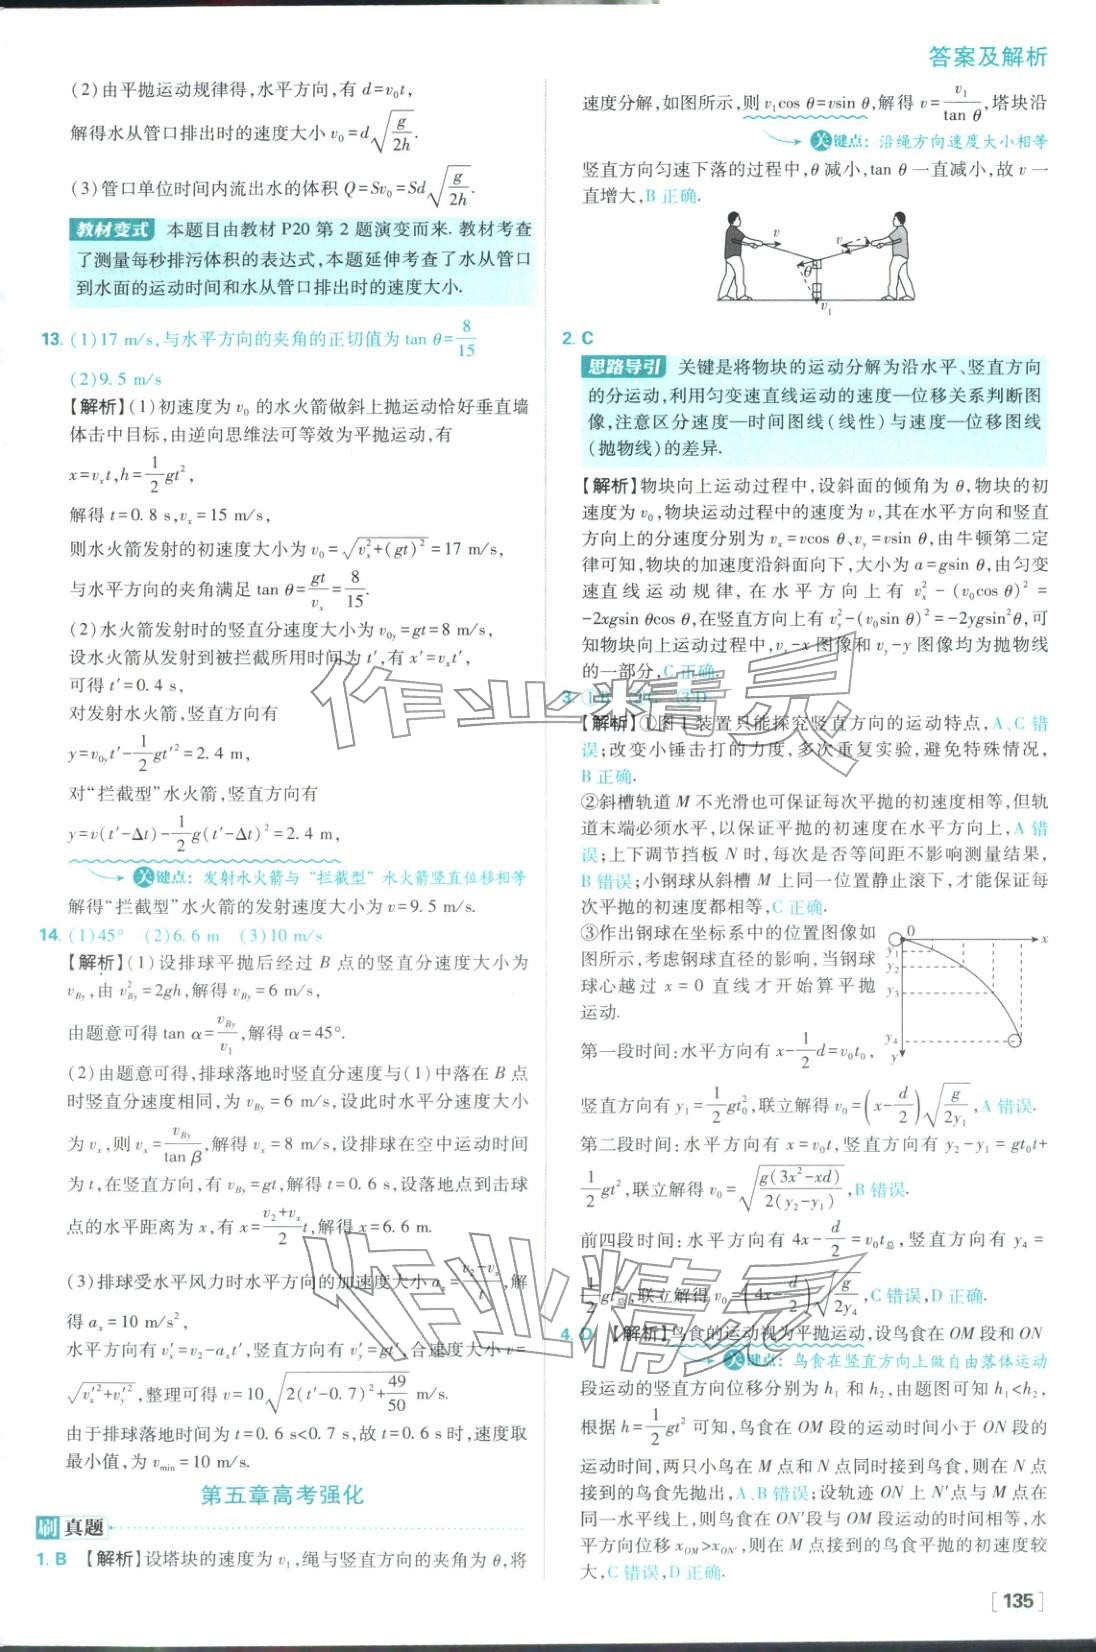 答案及解析
(2)由平抛运动规律得,水平方向,有 d=v₀t,
解得水从管口排出时的速度大小 v₀=d√(g/2h).
(3)管口单位时间内流出水的体积 Q=Sv₀=Sd√(g/2h).
教材变式 本题目由教材 P20 第 2 题演变而来. 教材考查
了测量每秒排污体积的表达式,本题延伸考查了水从管口
到水面的运动时间和水从管口排出时的速度大小.
13. (1)17 m/s,与水平方向的夹角的正切值为 tan θ=8/15
(2)9.5 m/s
【解析】(1)初速度为 v₀ 的水火箭做斜上抛运动恰好垂直墙
体击中目标,由逆向思维法可等效为平抛运动,有
x=vₓt,h=1/2gt²,
解得 t=0.8 s,vₓ=15 m/s,
则水火箭发射的初速度大小为 v₀=√(vₓ²+(gt)²)=17 m/s,
与水平方向的夹角满足 tan θ=gt/vₓ=8/15.
(2)水火箭发射时的竖直分速度大小为 v₀y=gt=8 m/s,
设水火箭从发射到被拦截所用时间为 t′,有 x′=vₓt′,
可得 t′=0.4 s,
对发射水火箭,竖直方向有
y=v₀yt′-1/2gt′²=2.4 m,
对“拦截型”水火箭,竖直方向有
y=v(t′-Δt)-1/2g(t′-Δt)²=2.4 m,
关键点：发射水火箭与“拦截型”水火箭竖直位移相等
解得“拦截型”水火箭的发射速度大小为 v=9.5 m/s.
14. (1)45° (2)6.6 m (3)10 m/s
【解析】(1)设排球平抛后经过 B 点的竖直分速度大小为
vBy,由 vBy²=2gh,解得 vBy=6 m/s,
由题意可得 tan α=vBy/v₁,解得 α=45°.
(2)由题意可得,排球落地时竖直分速度与(1)中落在 B 点
时竖直分速度相同,为 vBy=6 m/s,设此时水平分速度大小
为 vₓ,则 vₓ=vBy/tan β,解得 vₓ=8 m/s,设排球在空中运动时间
为 t,在竖直方向,有 vBy=gt,解得 t=0.6 s,设落地点到击球
点的水平距离为 x,有 x=(v₂+vₓ)/2 t,解得 x=6.6 m.
(3)排球受水平风力时水平方向的加速度大小 aₓ=(v₂-vₓ)/t,解
得 aₓ=10 m/s²,
水平方向有 vₓ′=v₂-aₓt′,竖直方向有 vy′=gt′,合速度大小 v=
√(vₓ′²+vy′²),整理可得 v=10√(2(t′-0.7)²+49/50) m/s.
由于排球落地时间为 t=0.6 s<0.7 s,故 t=0.6 s时,速度取
最小值,为 vmin=10 m/s.
第五章高考强化
刷真题
1. B 【解析】设塔块的速度为 v₁,绳与竖直方向的夹角为 θ,将
速度分解,如图所示,则 v₁cos θ=vsin θ,解得 v=v₁/tan θ,塔块沿
关键点：沿绳方向速度大小相等
竖直方向匀速下落的过程中,θ 减小,tan θ 一直减小,故 v 一
直增大,B 正确.
v
v
θ
v₁
2. C
思路导引 关键是将物块的运动分解为沿水平、竖直方向
的分运动,利用匀变速直线运动的速度—位移关系判断图
像,注意区分速度—时间图线(线性)与速度—位移图线
(抛物线)的差异.
【解析】物块向上运动过程中,设斜面的倾角为 θ,物块的初
速度为 v₀,物块运动过程中的速度为 v,其在水平方向和竖直
方向上的分速度分别为 vₓ=vcos θ、vy=vsin θ,由牛顿第二定
律可知,物块的加速度沿斜面向下,大小为 a=gsin θ,由匀变
速直线运动规律,在水平方向上有 vₓ²-(v₀cos θ)²=
-2xgsin θcos θ,在竖直方向上有 vy²-(v₀sin θ)²=-2ygsin²θ,可
知物块向上运动过程中,vₓ-x 图像和 vy-y 图像均为抛物线
的一部分,C 正确.
3. ①B ②C ③D
【解析】①图 1 装置只能探究竖直方向的运动特点,A、C 错
误;改变小锤击打的力度,多次重复实验,避免特殊情况,
B 正确.
②斜槽轨道 M 不光滑也可保证每次平抛的初速度相等,但轨
道末端必须水平,以保证平抛的初速度在水平方向上,A 错
误;上下调节挡板 N 时,每次是否等间距不影响测量结果,
B 错误;小钢球从斜槽 M 上同一位置静止滚下,才能保证每
次平抛的初速度都相等,C 正确.
③作出钢球在坐标系中的位置图像如
图所示,考虑钢球直径的影响,当钢球
球心越过 x=0 直线才开始算平抛
运动.
0
x
y₁
y₂
y₃
y₄
y
第一段时间:水平方向有 x-1/2d=v₀t₀,
竖直方向有 y₁=1/2gt₀²,联立解得 v₀=(x-d/2)√(g/2y₁),A 错误.
第二段时间:水平方向有 x=v₀t,竖直方向有 y₂-y₁=gt₀t+
1/2gt²,联立解得 v₀=√(g(3x²-xd)/2(y₂-y₁)),B 错误.
前四段时间:水平方向有 4x-d/2=v₀t总,竖直方向有 y₄=
1/2gt总²,联立解得 v₀=(4x-d/2)√(g/2y₄),C 错误,D 正确.
4. D 【解析】鸟食的运动视为平抛运动,设鸟食在 OM 段和 ON
关键点：鸟食在竖直方向上做自由落体运动
段运动的竖直方向位移分别为 h₁ 和 h₂,由题图可知 h₁<h₂,
根据 h=1/2gt² 可知,鸟食在 OM 段的运动时间小于 ON 段的
运动时间,两只小鸟在 M 点和 N 点同时接到鸟食,则在 N 点
接到的鸟食先抛出,A、B 错误;设轨迹 ON 上 N′点与 M 点在
同一水平线上,则鸟食在 ON′段与 OM 段运动的时间相等,水
平方向位移 xOM>xON′,则在 M 点接到的鸟食平抛的初速度较
大,C 错误,D 正确.
作业精灵
作业精灵
[135]